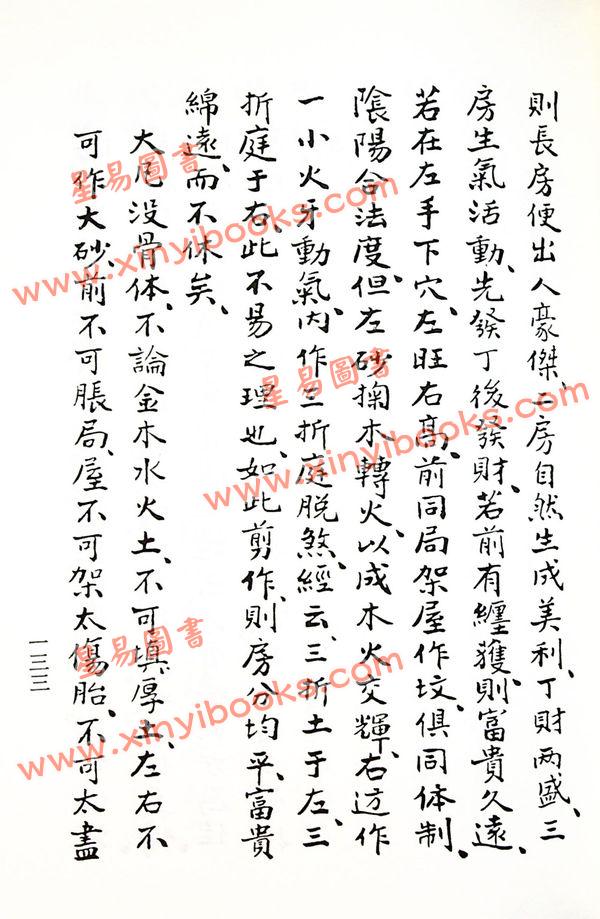 則長房便出人豪傑、二房自然生成美利、丁財两盛、三
房生氣活動、先發丁後發財、若前有纏護、則富貴久遠、
若在左手下穴、左旺右高、前同局架屋作坟、俱同体制、
陰陽合法度、但左砂掬木轉火、以成木火交輝、右边作
一小火牙動氣、内作三折庭脱煞、經云、三折土于左、三
折庭于右、此不易之理也、如此剪作、則房分均平、富貴
綿遠、而不休矣、
大尾没骨体、不論金木水火土、不可填厚土、左右不
可作大砂、前不可脹局、屋不可架太傷胎、不可太盡
一三三
星易圖書
www.xinyibooks.com
星易圖書
www.xinyibooks.com
星易圖書
www.xinyibooks.com